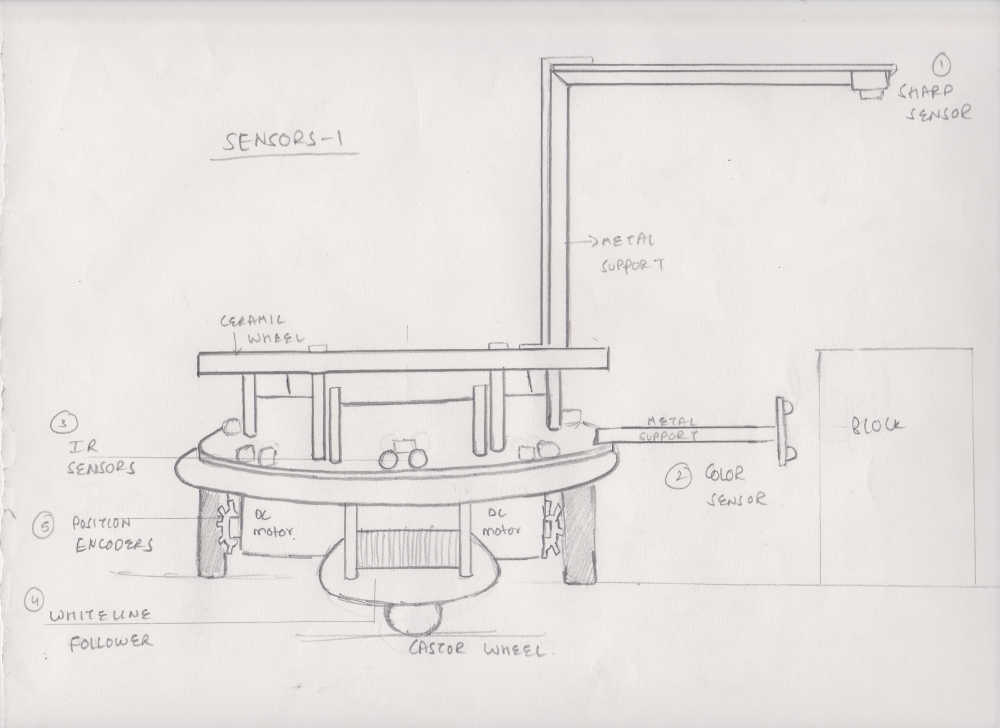 1
SHARP
SENSOR
SENSORS-1
METAL
SUPPORT
CERAMIC
WHEEL
METAL
SUPPORT
BLOCK
3
IR
SENSORS
2 COLOR
SENSOR
5 POSITION
ENCODERS
DC
motor.
DC
motor
4 WHITELINE
FOLLOWER
CASTOR WHEEL.